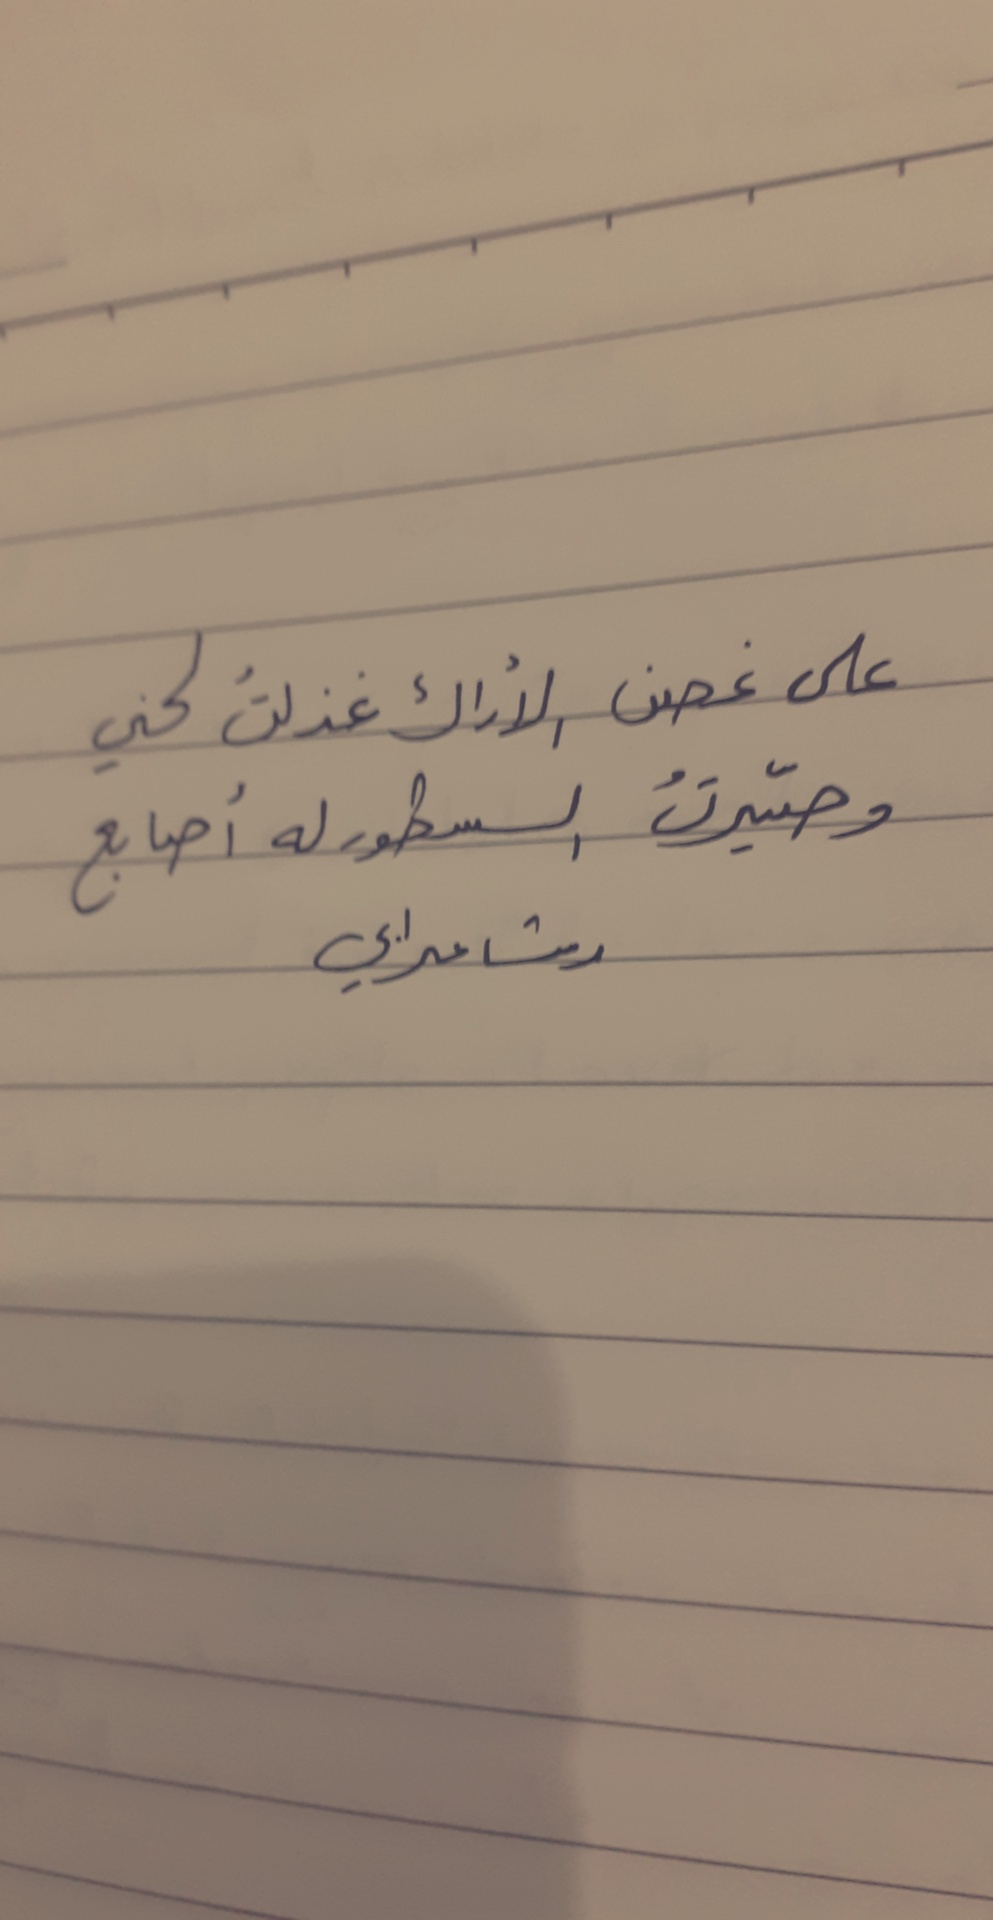 على غصن الأراك غزلتُ لحني
وصيّرتُ السطور له أصابع
رشا عرابي